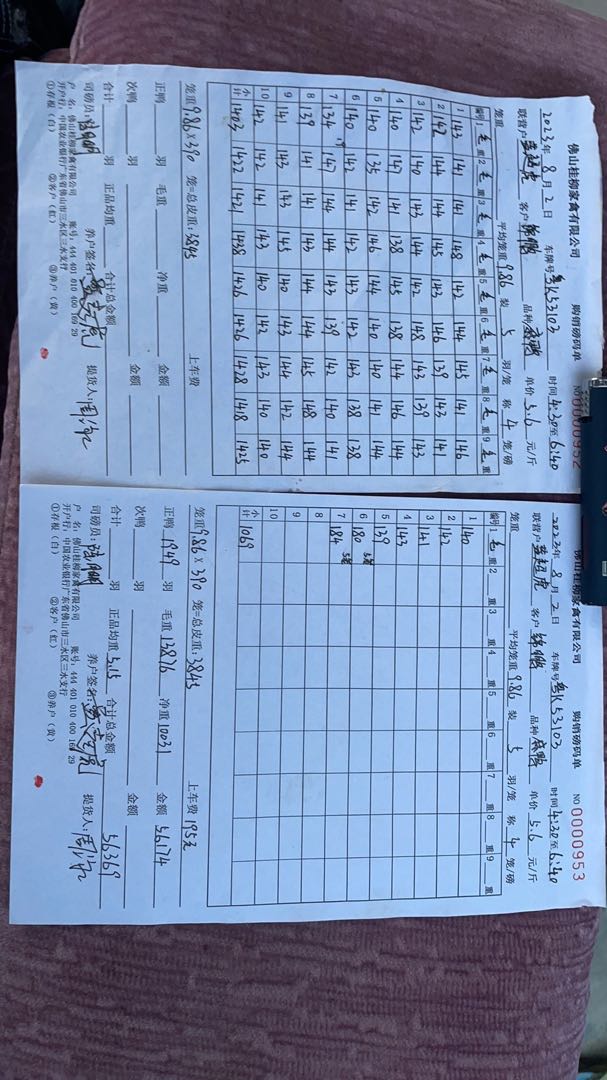 佛山桂柳家禽有限公司 购销磅码单 NO 0000952
2023年 8月 2日 车牌号 粤K53103 时间 4:30至6:40
联营户 客户 品种 单价 5.6 元/斤
笼重 平均笼重 9.86 装 5 羽/笼 称 4 笼/磅
编号 1 毛重 2 毛重 3 毛重 4 毛重 5 毛重 6 毛重 7 毛重 8 毛重 9 毛重
1 143 141 141 148 142 144 145 141 146
2 142 144 144 145 143 146 139 143 141
3 142 140 143 144 142 148 143 139 143
4 140 147 141 138 145 138 144 146 144
5 140 135 142 146 144 140 140 141 144
6 140 142 141 142 143 142 143 138 138
7 134 147 144 144 143 139 142 140 141
8 139 141 141 143 144 144 145 148 144
9 141 143 143 145 140 143 144 142 144
10 142 142 141 143 140 142 143 140 140
小计 1403 1422 1421 1438 1426 1426 1428 1418 1425
笼重 9.86×390 笼=总皮重:3845 上车费
正鸭 羽 毛重 净重 金额
次鸭 羽 金额
合计 羽 正品均重 合计总金额
司磅员: 养户签名: 提货人:
户 名:佛山桂柳家禽有限公司 账号:444 401 010 400 169 29
开户行:中国农业银行广东省佛山市三水区三水支行
①存根(白) ②客户(红) ③养户(黄)
佛山桂柳家禽有限公司 购销磅码单 NO 0000953
2023年 8月 2日 车牌号 粤K53103 时间 4:30至6:40
联营户 客户 品种 单价 5.6 元/斤
笼重 平均笼重 9.86 装 5 羽/笼 称 4 笼/磅
编号 1 毛重 2 重 3 重 4 重 5 重 6 重 7 重 8 重 9 重
1 140
2 142
3 141
4 143
5 139
6 180 5笼
7 184 5笼
8
9
10
小计 1069
笼重 9.86×390 笼=总皮重:3845 上车费 195元
正鸭 1949 羽 毛重 13876 净重 10031 金额 56174
次鸭 羽 金额
合计 羽 正品均重 5.15 合计总金额 56369
司磅员: 养户签名: 提货人:
户 名:佛山桂柳家禽有限公司 账号:444 401 010 400 169 29
开户行:中国农业银行广东省佛山市三水区三水支行
①存根(白) ②客户(红) ③养户(黄)